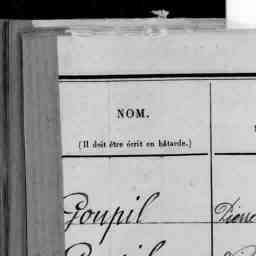 NOM.
(Il doit être écrit en bâtarde.)
Goupil Pierre
Goupil